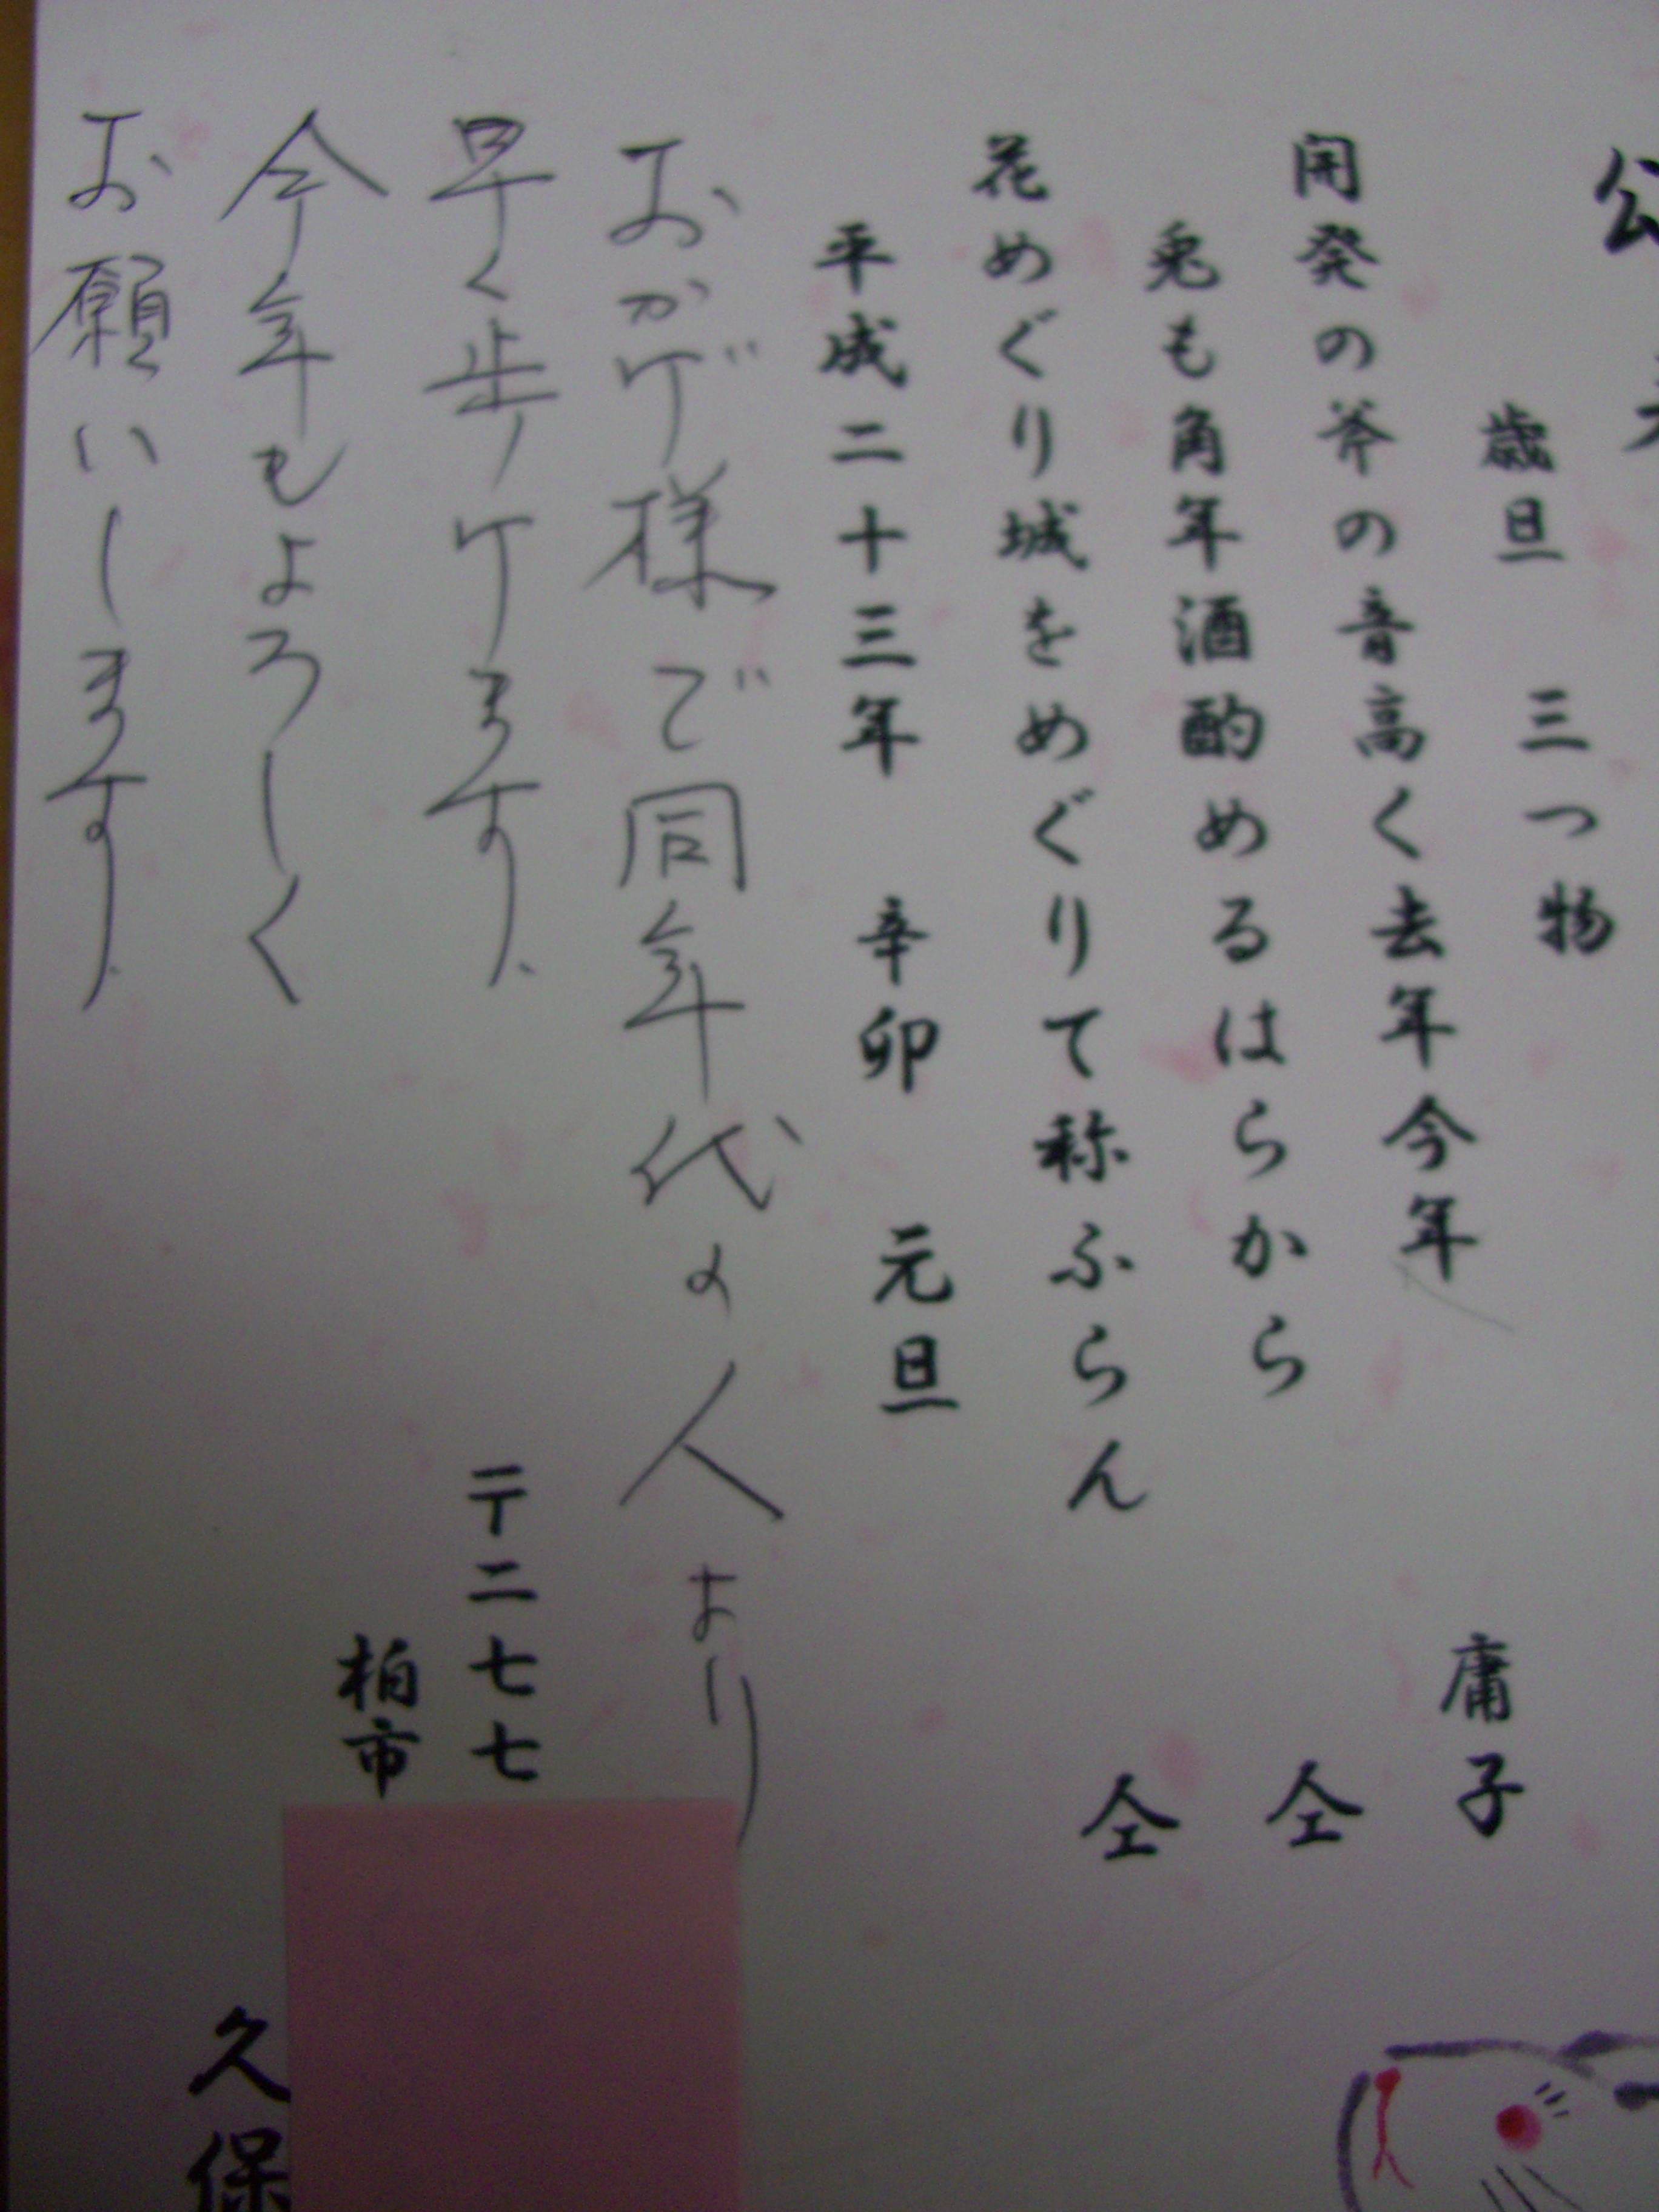 公
歳旦 三つ物
開発の斧の音高く去年今年 庸子
兎も角年酒酌めるはらから 仝
花めぐり城をめぐりて称ふらん 仝
平成二十三年 辛卯 元旦
おかげ様で同年代の人より
早く歩けます、
今年もよろしく
お願いします、
〒二七七
柏市
久保